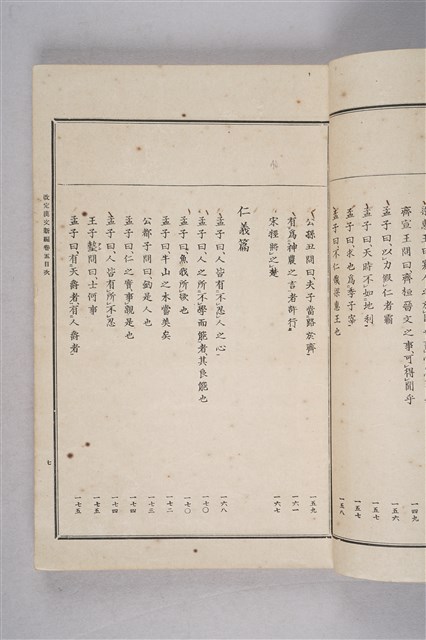 惠王曰寡人之於國 一四九
齊宣王問曰齊桓晉文之事可得聞乎 一五六
孟子曰以力假仁者霸 一五七
孟子曰天時不如地利 一五七
孟子曰求也爲季子宰 一五八
孟子曰不仁哉梁惠王也
公孫丑問曰夫子當路於齊 一五九
有爲神農之言者許行 一六一
宋牼將之楚 一六七
仁義篇
孟子曰人皆有不忍人之心 一六八
孟子曰人之所不學而能者其良能也 一七〇
孟子曰魚我所欲也 一七〇
孟子曰牛山之木嘗美矣 一七二
公都子問曰鈞是人也 一七三
孟子曰仁之實事親是也 一七四
孟子曰人皆有所不忍 一七四
王子墊問曰士何事 一七五
孟子曰有天爵者有人爵者 一七五
改定漢文新編卷五目次
七